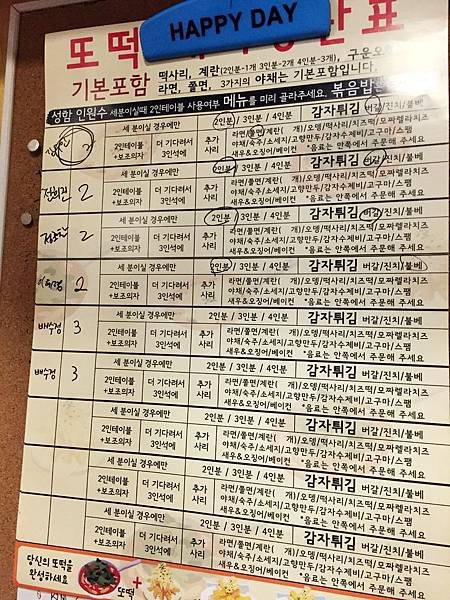 HAPPY DAY
또떡
표
기본포함 떡사리, 계란(2인분-1개 3인분-2개 4인분-3개), 구운오
라면, 쫄면, 3가지의 야채는 기본포함입니다.
성함 인원수 세분이실때 2인테이블 사용여부 메뉴를 미리 골라주세요. 볶음밥
세 분이실 경우에만 2인분 / 3인분 / 4인분 감자튀김 버갈/진치/불베
2인테이블 +보조의자 더 기다려서 3인석에 추가 사리 라면/쫄면/계란( 개)/오뎅/떡사리/치즈떡/모짜렐라치즈
야채/숙주/소세지/고향만두/감자수제비/고구마/스팸
새우&오징어/베이컨 *음료는 안쪽에서 주문해 주세요
2
세 분이실 경우에만 2인분 / 3인분 / 4인분 감자튀김 버갈/진치/불베
2인테이블 +보조의자 더 기다려서 3인석에 추가 사리 라면/쫄면/계란( 개)/오뎅/떡사리/치즈떡/모짜렐라치즈
야채/숙주/소세지/고향만두/감자수제비/고구마/스팸
새우&오징어/베이컨 *음료는 안쪽에서 주문해 주세요
2
세 분이실 경우에만 2인분 / 3인분 / 4인분 감자튀김 버갈/진치/불베
2인테이블 +보조의자 더 기다려서 3인석에 추가 사리 라면/쫄면/계란( 개)/오뎅/떡사리/치즈떡/모짜렐라치즈
야채/숙주/소세지/고향만두/감자수제비/고구마/스팸
새우&오징어/베이컨 *음료는 안쪽에서 주문해 주세요
2
세 분이실 경우에만 2인분 / 3인분 / 4인분 감자튀김 버갈/진치/불베
2인테이블 +보조의자 더 기다려서 3인석에 추가 사리 라면/쫄면/계란( 개)/오뎅/떡사리/치즈떡/모짜렐라치즈
야채/숙주/소세지/고향만두/감자수제비/고구마/스팸
새우&오징어/베이컨 *음료는 안쪽에서 주문해 주세요
배수경 3
세 분이실 경우에만 2인분 / 3인분 / 4인분 감자튀김 버갈/진치/불베
2인테이블 +보조의자 더 기다려서 3인석에 추가 사리 라면/쫄면/계란( 개)/오뎅/떡사리/치즈떡/모짜렐라치즈
야채/숙주/소세지/고향만두/감자수제비/고구마/스팸
새우&오징어/베이컨 *음료는 안쪽에서 주문해 주세요
배수경 3
세 분이실 경우에만 2인분 / 3인분 / 4인분 감자튀김 버갈/진치/불베
2인테이블 +보조의자 더 기다려서 3인석에 추가 사리 라면/쫄면/계란( 개)/오뎅/떡사리/치즈떡/모짜렐라치즈
야채/숙주/소세지/고향만두/감자수제비/고구마/스팸
새우&오징어/베이컨 *음료는 안쪽에서 주문해 주세요
세 분이실 경우에만 2인분 / 3인분 / 4인분 감자튀김 버갈/진치/불베
2인테이블 +보조의자 더 기다려서 3인석에 추가 사리 라면/쫄면/계란( 개)/오뎅/떡사리/치즈떡/모짜렐라치즈
야채/숙주/소세지/고향만두/감자수제비/고구마/스팸
새우&오징어/베이컨 *음료는 안쪽에서 주문해 주세요
세 분이실 경우에만 2인분 / 3인분 / 4인분 감자튀김 버갈/진치/불베
2인테이블 +보조의자 더 기다려서 3인석에 추가 사리 라면/쫄면/계란( 개)/오뎅/떡사리/치즈떡/모짜렐라치즈
야채/숙주/소세지/고향만두/감자수제비/고구마/스팸
새우&오징어/베이컨 *음료는 안쪽에서 주문해 주세요
세 분이실 경우에만 2인분 / 3인분 / 4인분 감자튀김 버갈/진치/불베
2인테이블 +보조의자 더 기다려서 3인석에 추가 사리 라면/쫄면/계란( 개)/오뎅/떡사리/치즈떡/모짜렐라치즈
야채/숙주/소세지/고향만두/감자수제비/고구마/스팸
새우&오징어/베이컨 *음료는 안쪽에서 주문해 주세요
당신의 또떡을
완성하세요
또떡